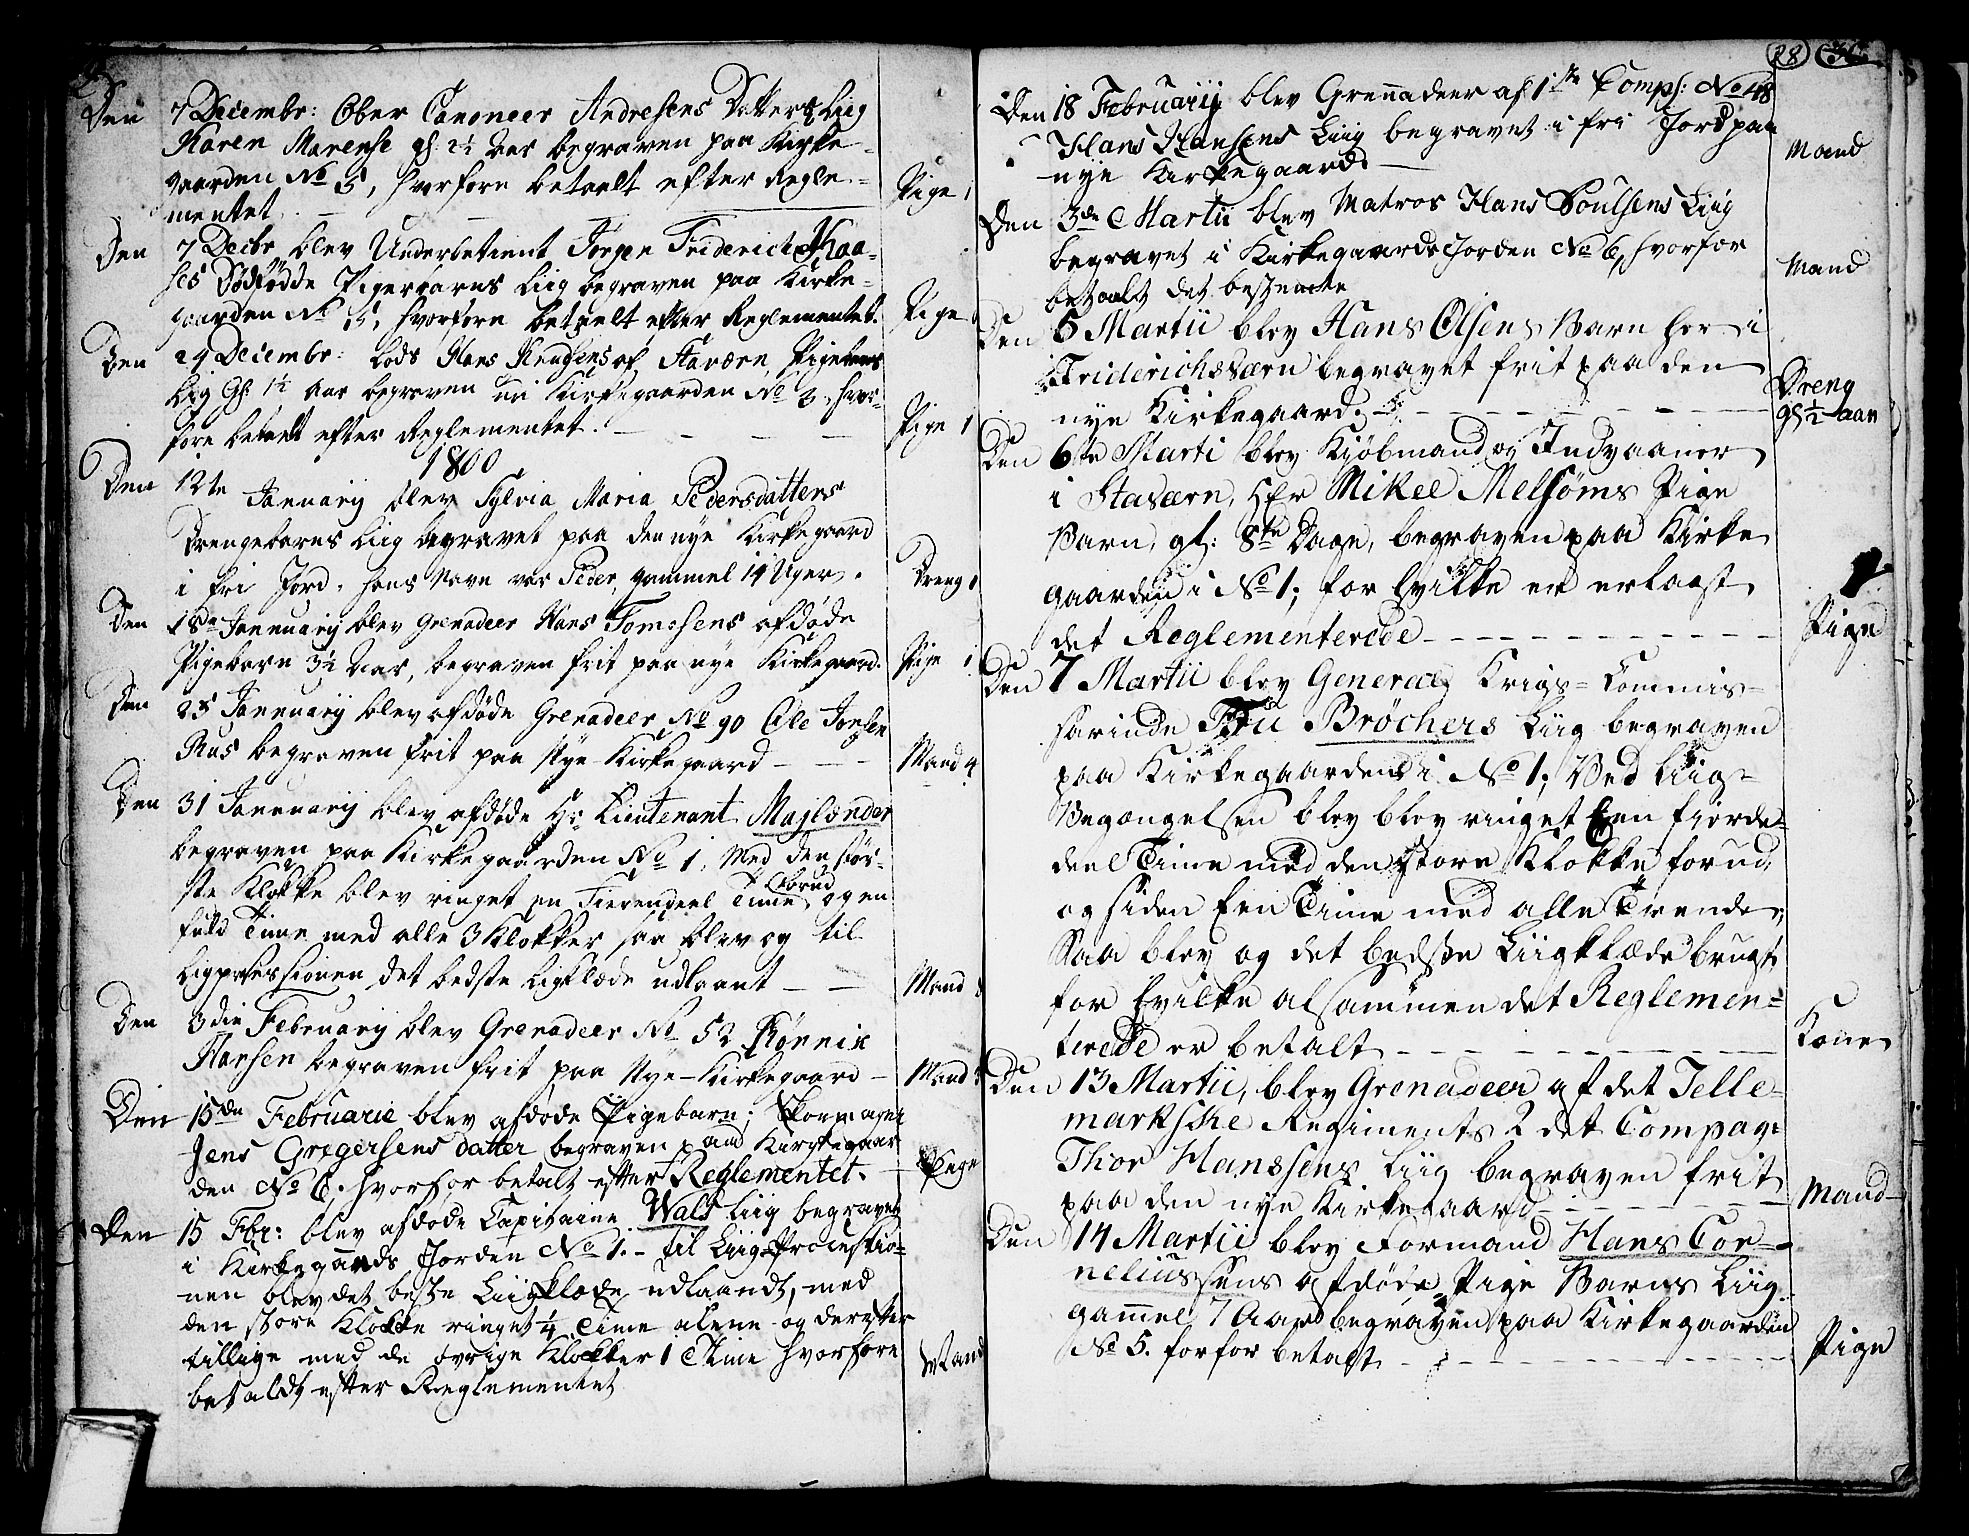 Den 7 Decembr: Ober Canoneer Andresens Datters Liig
Karen Marense gl. 2½ Aar begraven paa Kirke-
gaarden No 5, hvorfore betaelt efter Regle-
mentet
Pige 1
Den 7 Decbr blev Underbetient Jørgen Friderich
ses Dødfødde Pigebarns Liig begraven paa Kirke-
gaarden No 5, hvorfore betaelt efter Reglementet.
Pige
Den 29 Decembr: Lods Hans Knudsens af Staværn Pigebarns
Liig Gl: 1½ Aar begraven i Kirkegaarden No 3, hvor-
fore betaelt efter Reglementet.
Pige 1
1800
Den 12te Januarij blev Sylvia Maria Pedersdatters
Drengebarns Liig begravet paa den nye Kirkegaard
i fri Jord. hans Navn var Peder, gammel 14 Uger.
Dreng 1
Den 18de Januarij blev Grenadeer Hans Tomesens afdøde
Pigebarn 3½ Aar, begraven frit paa nye Kirkegaard.
Pige 1
Den 25 Januarij blev afdøde Grenadeer No 90 Ole Jensen
Rus begraven frit paa Nye Kirkegaard
Mand 4
Den 31 Januarij blev afdøde Hr Lieutenant Majlænder
begraven paa Kirkegaarden No 1, Med den stør-
ste Klokke blev ringet en Fierendeel Time forud, og en
fuld Time med alle 3 Klokker saa blev og til
Ligprosessionen det bedste Ligklæde udlaant
Mand
Den 3die Februarij blev Grenadeer No 52 Rønnik
Hansen begraven frit paa Nye-Kirkegaard
Mand
Den 15de Februarie blev afdøde Pigebarn;
Jens Gregersens datter begraven paa Kirkegaar
den No 6. hvorfor betalt efter Reglementet.
Pige
Den 15 Fbr: blev afdøde Capitaine Wals Liig begravet
i Kirkegaards Jorden No 1. - til Liig-Processio-
nen blev det beste Liigklæde udlaandt, med
den store Klokke ringet ¼ Time alene og derefter
tillige med de øvrige Klokker 1 Time hvorfore
betaldt efter Reglementet
Mand
28
Den 18 Februarij blev Grennadeer af 1ste Comp: No 48
Hans Hansens Liig begravet i fri Jord paa
nye Kirkegaard
Mand
Den 3de Martii blev Matros Hans Poulsens Liig
begravet i Kirkegaards Jorden No 6, hvorfor
betalt det bestemte
Mand
Den 5 Martii blev Hans Olsens Barn her i
Friderichsværn begravet frit paa den
nye Kirkegaard.
Dreng
gl ½ aar
Den 6te Marti blev Kjøbmand og Indvaaner
i Staværn, HEr Mikel Melsøms Pige
Barn, gl: 8te Dage, begraven paa Kirke
gaarden i No 1; for hvilke er erlagt
det Reglementerede
Pige
Den 7 Martii blev General Krigs-Commis-
sarinde Fru Bröchers Liig begraven
paa Kirkegaarden i No 1; Ved Liig-
Begængelsen blev blev ringet Een fierde-
deel Time med den store Klokke forud,
og siden Een Time med alle Trende,
Saa blev og det bedste Liigklæde brugt,
for hvilke alsammen det Reglemen-
terede er betalt
Kone
Den 13 Martii, blev Grenadeer af det Telle-
markske Regiments 2 det Compag:
Thor Hanssens Liig begraven frit
paa den nye Kirkegaard
Mand
Den 14 Martii blev Formand Hans Cor-
neliussens afdøde Pige Barns Liig
gammel 7 Aar begraven paa Kirkegaarden
No 5. forfor betalt
Pige